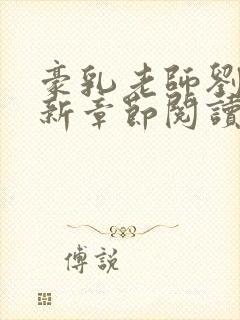 豪乳老師劉
新章節閱讀
傅說